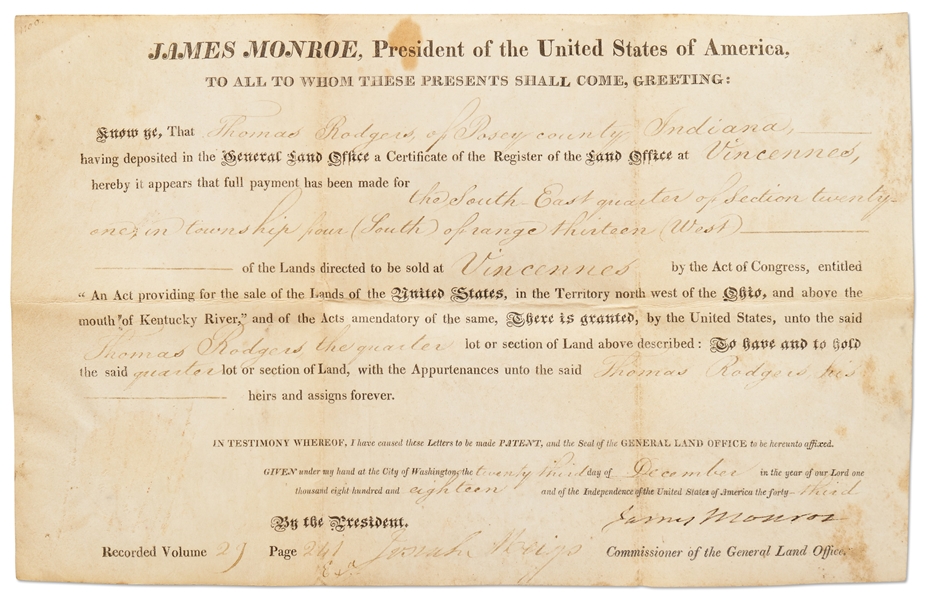 JAMES MONROE, President of the United States of America,
TO ALL TO WHOM THESE PRESENTS SHALL COME, GREETING:
Know ye, That Thomas Rodgers, of Posey county Indiana,
having deposited in the General Land Office a Certificate of the Register of the Land Office at Vincennes,
hereby it appears that full payment has been made for
the South-East quarter of Section twenty-
one, in township four (South) of range thirteen (West)
of the Lands directed to be sold at Vincennes by the Act of Congress, entitled
“An Act providing for the sale of the Lands of the United States, in the Territory north west of the Ohio, and above the
mouth of Kentucky River,” and of the Acts amendatory of the same, There is granted, by the United States, unto the said
Thomas Rodgers the quarter lot or section of Land above described: To have and to hold
the said quarter lot or section of Land, with the Appurtenances unto the said Thomas Rodgers his
heirs and assigns forever.
IN TESTIMONY WHEREOF, I have caused these Letters to be made PATENT, and the Seal of the GENERAL LAND OFFICE to be hereunto affixed.
GIVEN under my hand at the City of Washington, the twenty third day of December in the year of our Lord one
thousand eight hundred and eighteen and of the Independence of the United States of America the forty-third
By the President. James Monroe
Recorded Volume Page 241 Josiah Meigs Commissioner of the General Land Office.